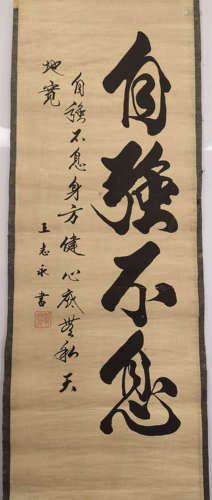 自強不息
自強不息身方健心底無私天
地寬
王志永書